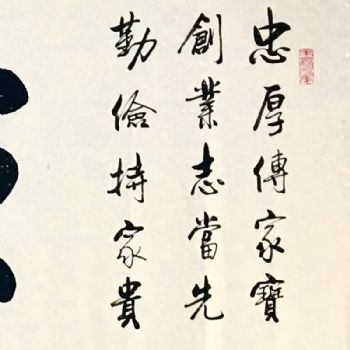 忠厚傳家寶
創業志當先
勤儉持家貴